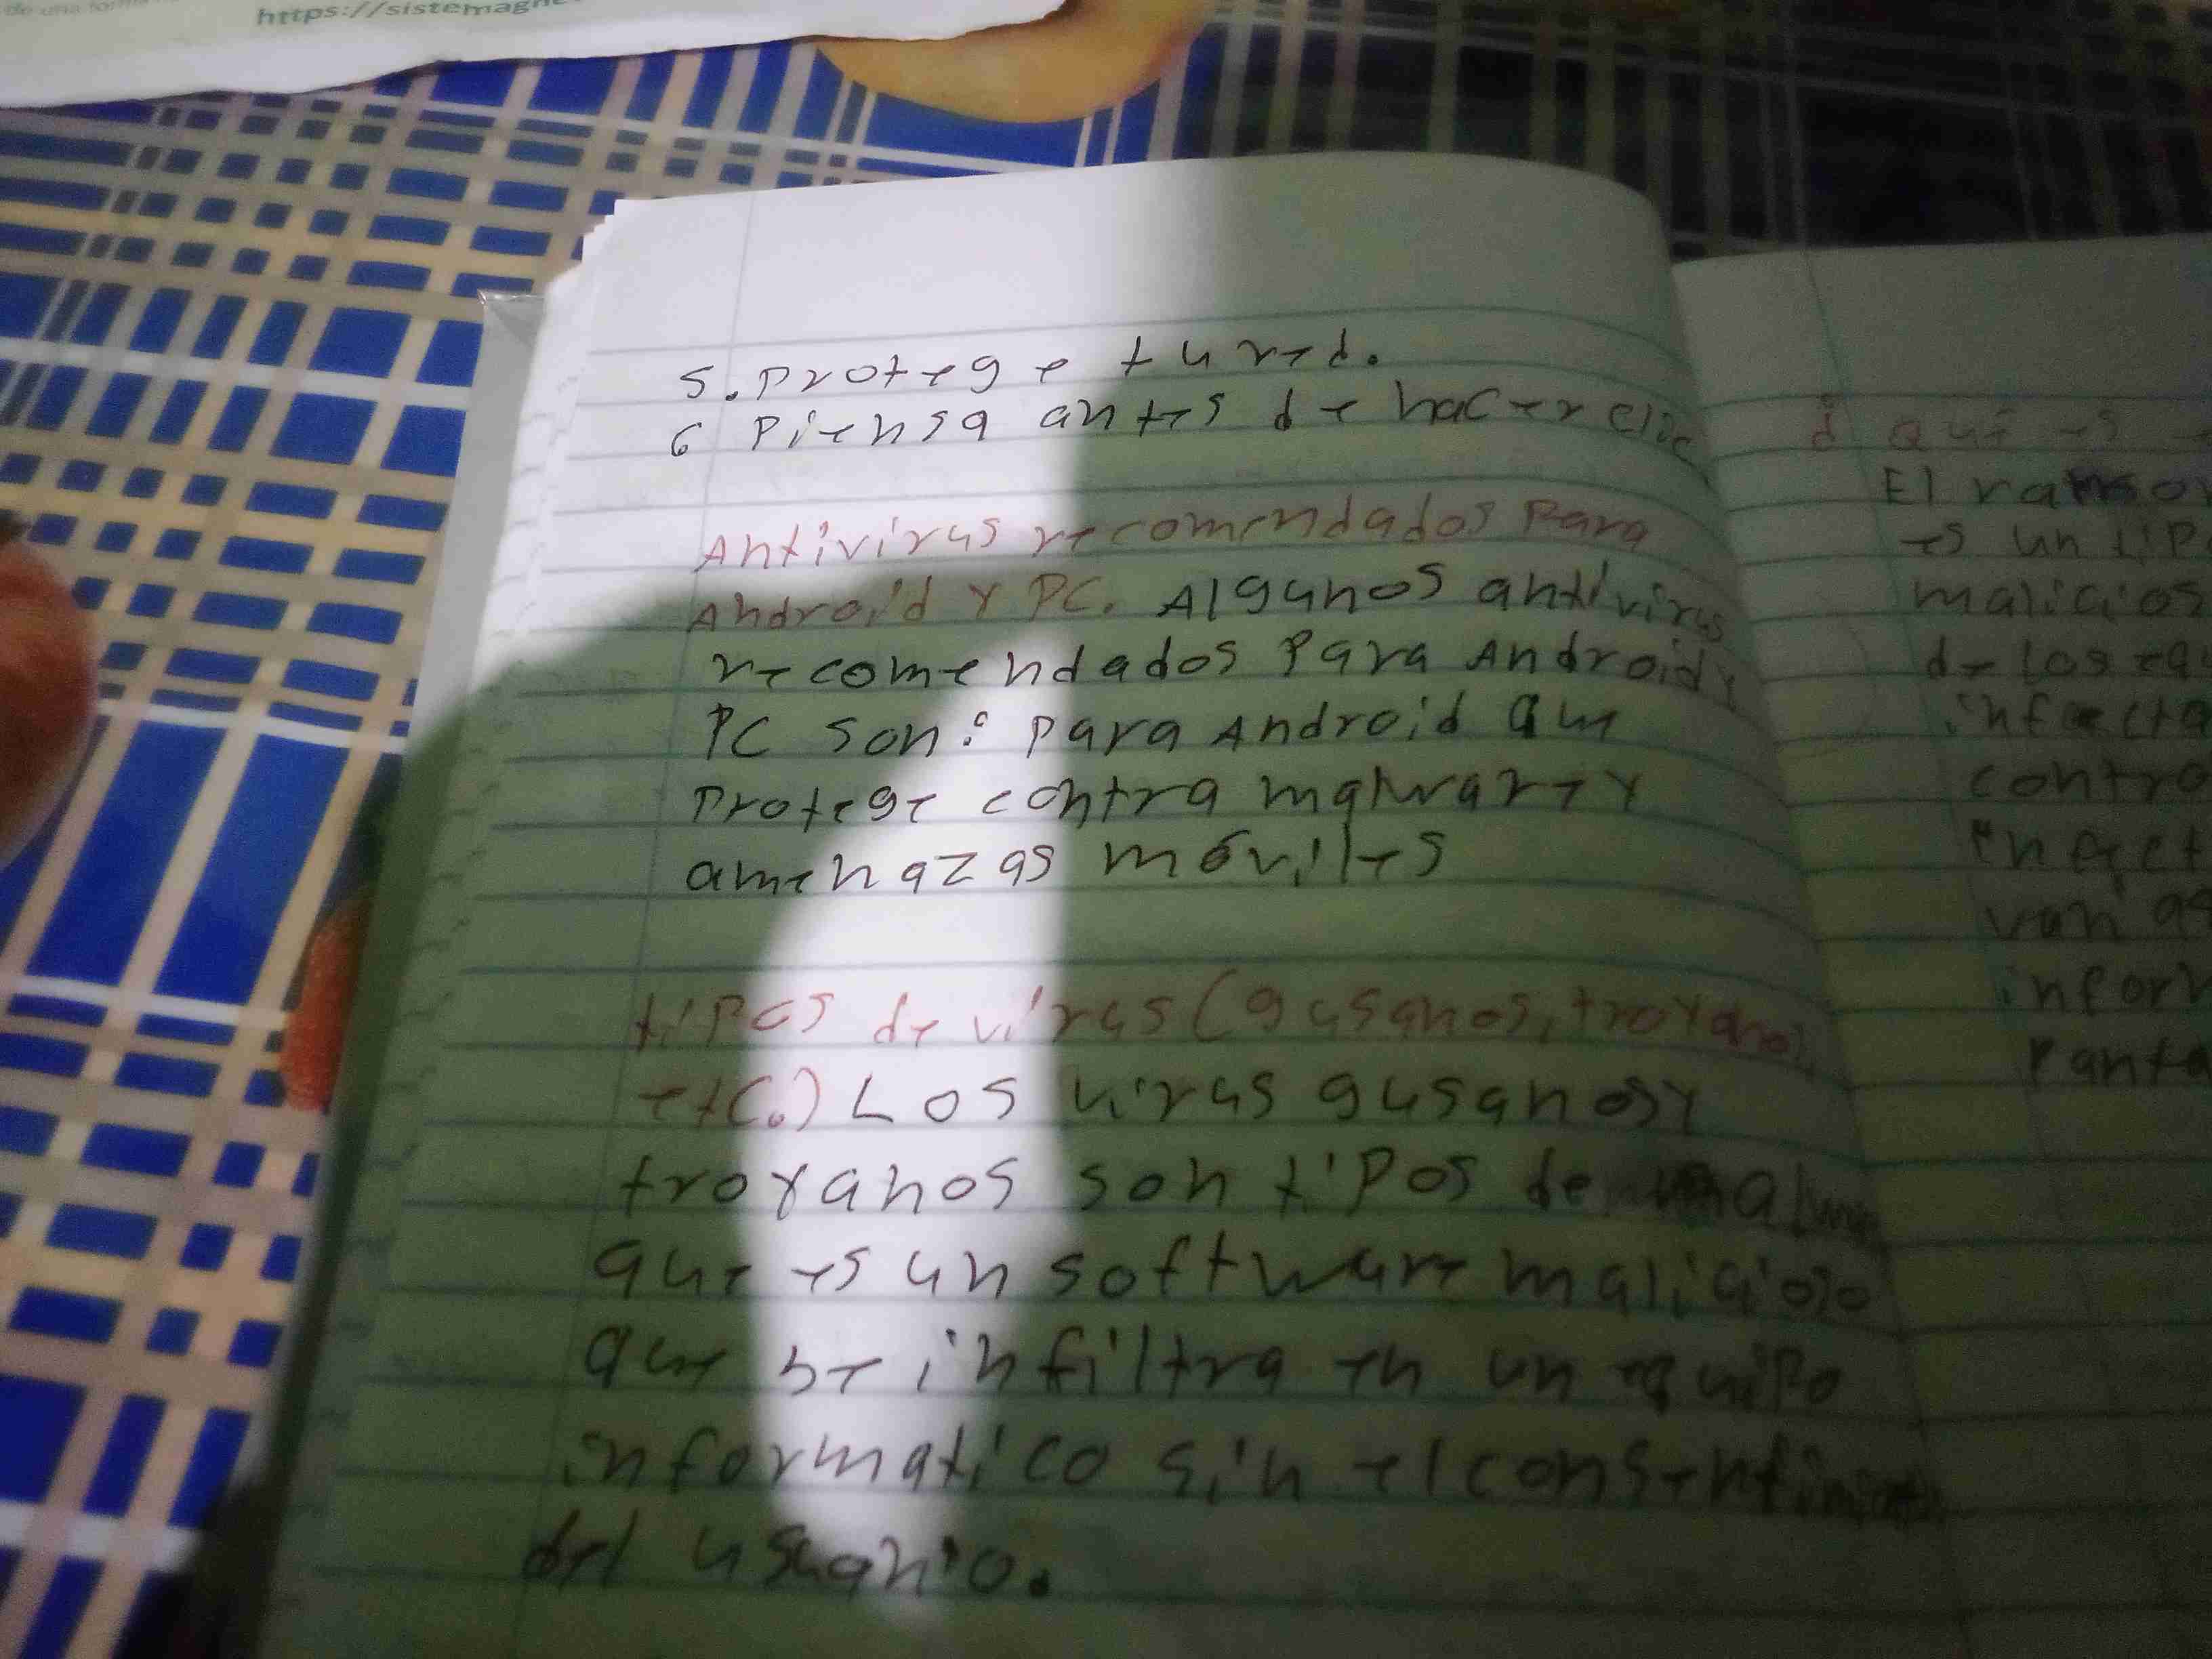 de una forma
https://sistemagne
5. Protege tu red.
6 Piensa antes de hacer clic
Antivirus recomendados para
Android y PC. Algunos antivirus
recomendados para Android y
PC son: para Android que
Protege contra malware y
amenazas móviles
tipos de virus (gusanos, troyanos,
etc.) Los virus gusanos y
troyanos son tipos de
que es un software malicioso
que se infiltra en un equipo
informatico sin el consentimiento
del usuario.
¿Qué es
El
es un tipo
malicios
de los equ
infecta
contra
infect
van as
infor
Panta